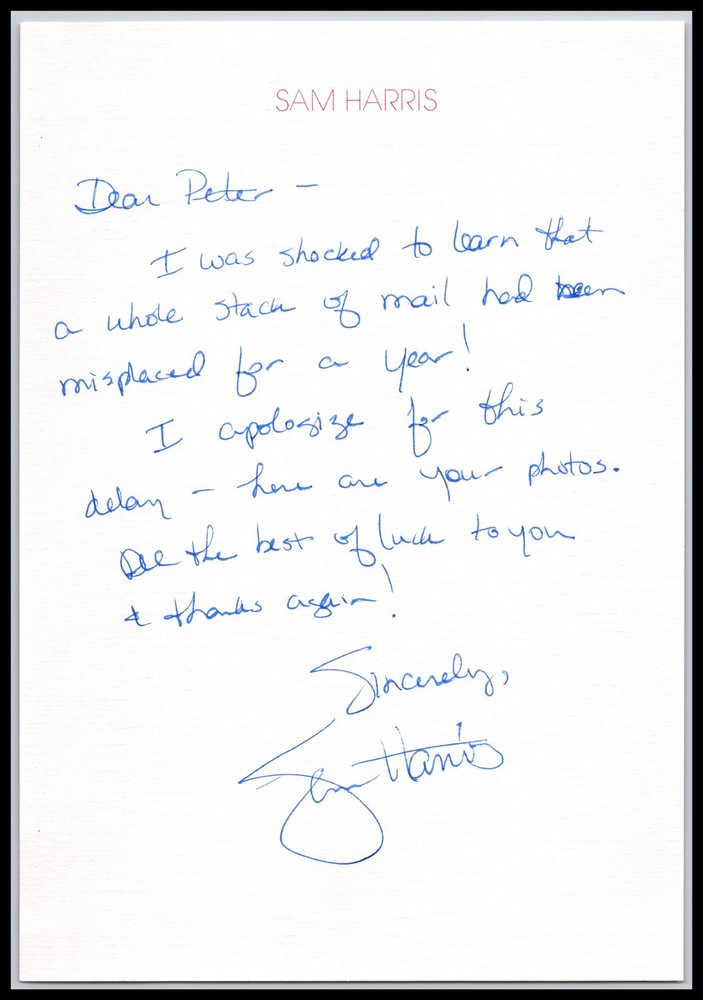 SAM HARRIS
Dear Peter -
I was shocked to learn that
a whole stack of mail had been
misplaced for a year!
I apologize for this
delay - here are your photos.
All the best of luck to you
& thanks again!
Sincerely,
Sam Harris